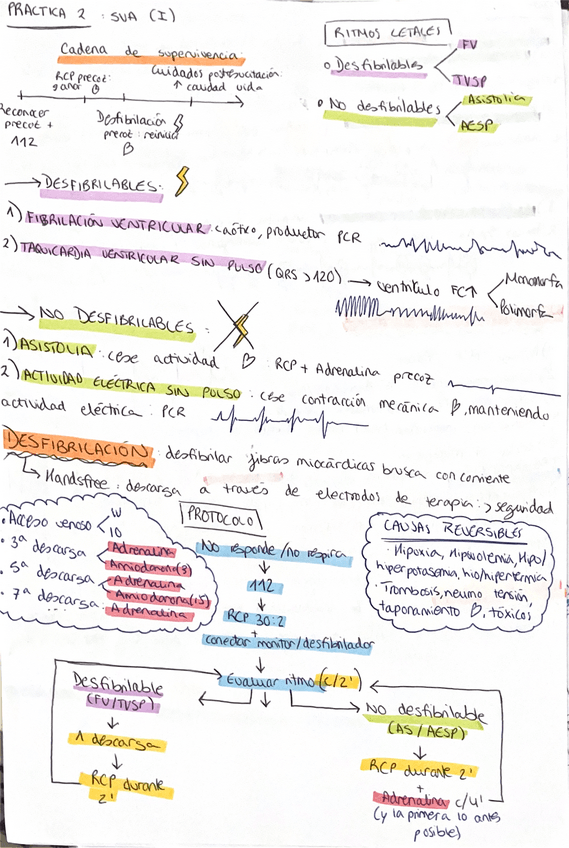 PRACTICA 2 : SVA (I)
Cadena de supervivencia:
RCP precoz:
ganar
Cuidados postresucitación:
↑ calidad vida
Reconocer
precoz +
112
Desfibrilación
precoz: reinicia
RITMOS LETALES
○ Desfibrilables
FV
TVSP
○ No desfibrilables
Asistolia
AESP
→ DESFIBRILABLES:
1) FIBRILACIÓN VENTRICULAR: caótico, productor PCR
2) TAQUICARDIA VENTRICULAR SIN PULSO (QRS > 120) → ventrículo FC↑
Monomorfa
Polimorfa
→ NO DESFIBRILABLES:
1) ASISTOLIA: cese actividad ♡ : RCP + Adrenalina precoz
2) ACTIVIDAD ELÉCTRICA SIN PULSO: cese contracción mecánica ♡, manteniendo
actividad eléctrica: PCR
DESFIBRILACIÓN: desfibrilar fibras miocárdicas brusca con corriente
↳ Handsfree: descarga a través de electrodos de terapia: > seguridad
• Acceso venoso
IV
IO
• 3ª descarga
Adrenalina
Amiodarona (3)
• 5ª descarga
Adrenalina
Amiodarona (1,5)
• 7ª descarga: Adrenalina
PROTOCOLO
No responde / no respira
↓
112
↓
RCP 30:2
+
conectar monitor/desfibrilador
↓
Evaluar ritmo (c/2')
CAUSAS REVERSIBLES
· Hipoxia, Hipovolemia, Hipo/
hiperpotasemia, hio/hipertermia
· Trombosis, neumo tensión,
taponamiento ♡, tóxicos
Desfibrilable
(FV/TVSP)
↓
1 descarga
↓
RCP durante
2'
No desfibrilable
(AS / AESP)
↓
RCP durante 2'
+
Adrenalina c/4'
(y la primera lo antes
posible)